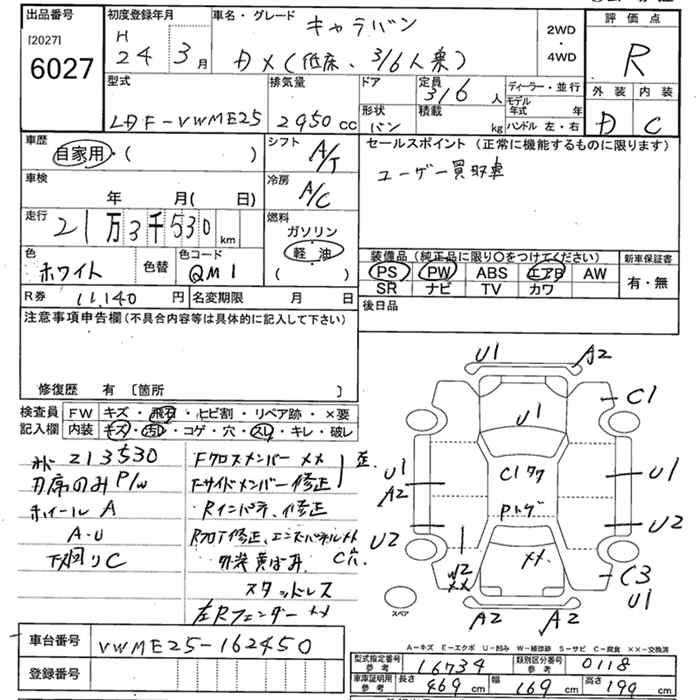 出品番号
[2027]
6027
初度登録年月
H
24 3月
車名・グレード
キャラバン
DX(低床、3/6人乗)
2WD
・
4WD
評価点
R
外装 内装
D C
型式
LDF-VWME25
排気量
2950cc
ドア
形状
バン
定員
3/6人
積載
kg
ディーラー・並行
モデル年式 年
ハンドル 左・右
車歴
自家用・( )
シフト
A/T
セールスポイント(正常に機能するものに限ります)
ユーザー買取車
車検
年 月( 日)
冷房
A/C
走行
21万3千530km
燃料
ガソリン
軽油
( )
色
ホワイト
色替
色コード
QM1
装備品(純正品に限り○をつけてください)
PS PW ABS エアB AW
SR ナビ TV カワ
新車保証書
有・無
R券 11,140円
名変期限 月 日
後日品
注意事項申告欄(不具合内容等は具体的に記入して下さい)
修復歴 有 [箇所 ]
検査員
記入欄
FW キズ・飛石・ヒビ割・リペア跡・×要
内装 キズ・汚れ・コゲ・穴・スレ・キレ・破レ
213530
刀席のみP/W
ホイールA
A・U
下廻りC
Fクロスメンバー××
Fサイドメンバー修正
歪
Rインパネ、修正
Rフロア修正、エンドパネル××
外装黄ばみ、C穴
スタッドレス
左Rフェンダー××
U1 A2
C1
U1
U1
A2
C1ワク
U1
Pトゲ
U2
U2
W2
××
××
C3
U1
A2 A2
スペア
A-キズ E-エクボ U-凹み W-補修跡 S-サビ C-腐食 ××-交換済
車台番号
VWME25-162450
登録番号
型式指定番号
参考
16734
類別区分番号
参考
0118
車庫証明用
参考
長さ 469cm 幅 169cm 高さ 199cm